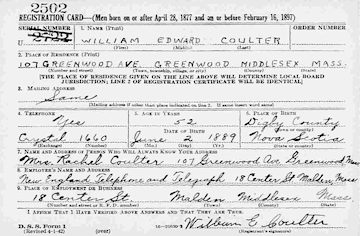 2502
REGISTRATION CARD—(Men born on or after April 28, 1877 and on or before February 16, 1897)
SERIAL NUMBER 1. NAME (Print) ORDER NUMBER
WILLIAM EDWARD COULTER
(First) (Middle) (Last)
2. PLACE OF RESIDENCE (Print)
107 GREENWOOD AVE. GREENWOOD MIDDLESEX MASS.
(Number and street) (Town, township, village, or city) (County) (State)
[THE PLACE OF RESIDENCE GIVEN ON THE LINE ABOVE WILL DETERMINE LOCAL BOARD
JURISDICTION; LINE 2 OF REGISTRATION CERTIFICATE WILL BE IDENTICAL]
3. MAILING ADDRESS
Same
[Mailing address if other than place indicated on line 2. If same insert word same]
4. TELEPHONE 5. AGE IN YEARS 6. PLACE OF BIRTH
Yes 52 Digby County
DATE OF BIRTH (Town or county)
Crystal 1660 June 2 1889 Nova Scotia
(Exchange) (Number) (Mo.) (Day) (Yr.) (State or country)
7. NAME AND ADDRESS OF PERSON WHO WILL ALWAYS KNOW YOUR ADDRESS
Mrs. Rachel Coulter 107 Greenwood Ave Greenwood Mass
8. EMPLOYER'S NAME AND ADDRESS
New England Telephone and Telegraph 18 Center St Malden, Mass
9. PLACE OF EMPLOYMENT OR BUSINESS
18 Center St Malden Middlesex Mass
(Number and street or R. F. D. number) (Town) (County) (State)
I AFFIRM THAT I HAVE VERIFIED ABOVE ANSWERS AND THAT THEY ARE TRUE.
D. S. S. Form 1 William E Coulter
(Revised 4-1-42) (over) (Registrant's signature)